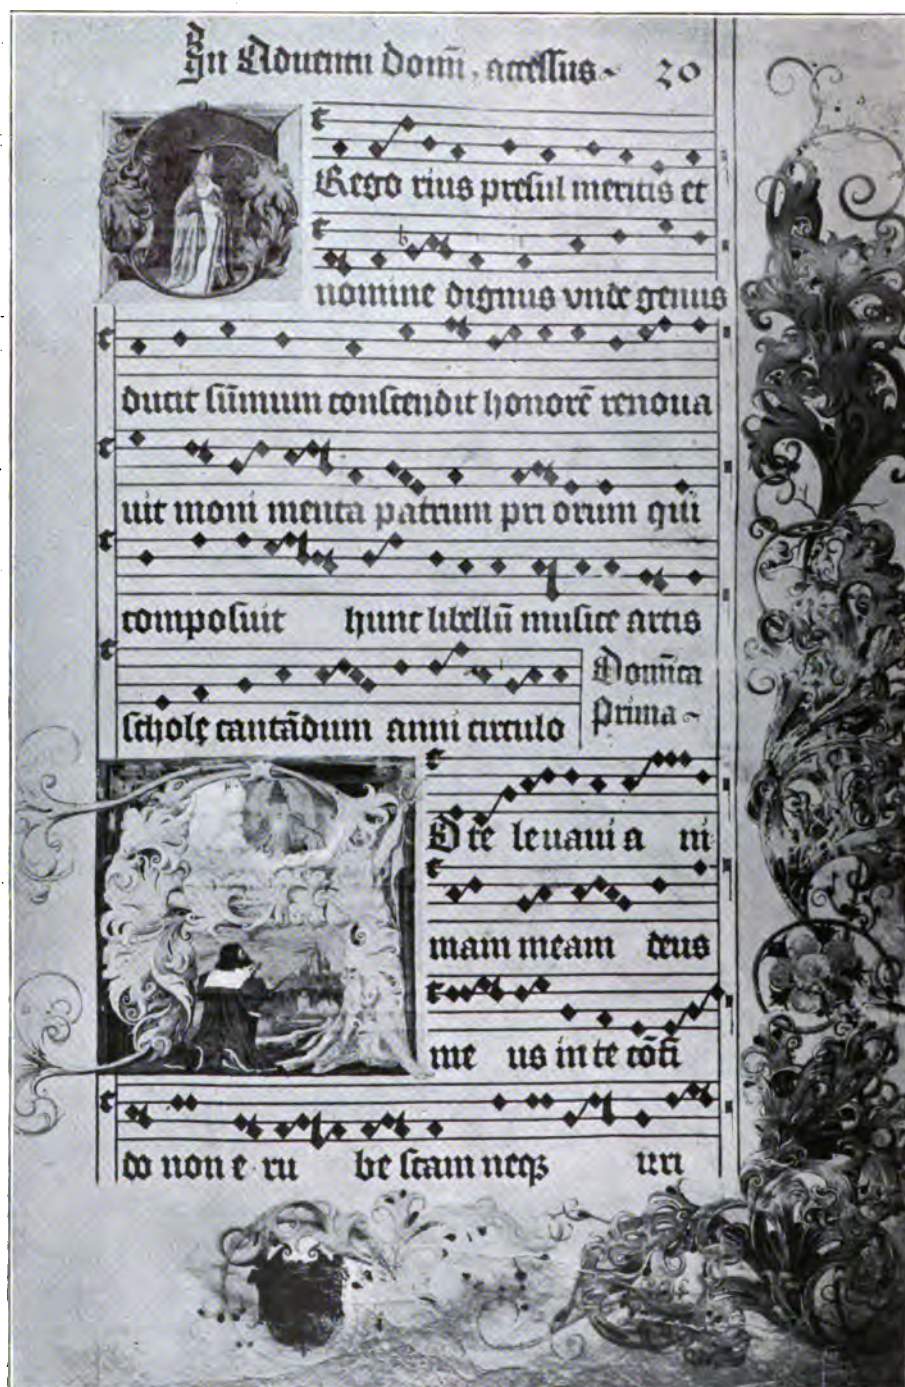 In Aduentu Dom̄, accessus 20
GRego rius presul meritis et
nomine dignus vnde genus
ducit sūmum conscendit honorē renoua
uit moni menta patrum pri orum qui
composuit hunc libellū musice artis
scholę cantādum anni circulo
Domīca
Prima
AD te leuaui a ni
mam meam deus
me us in te cōfi
do non e ru be scam neqꝫ irri